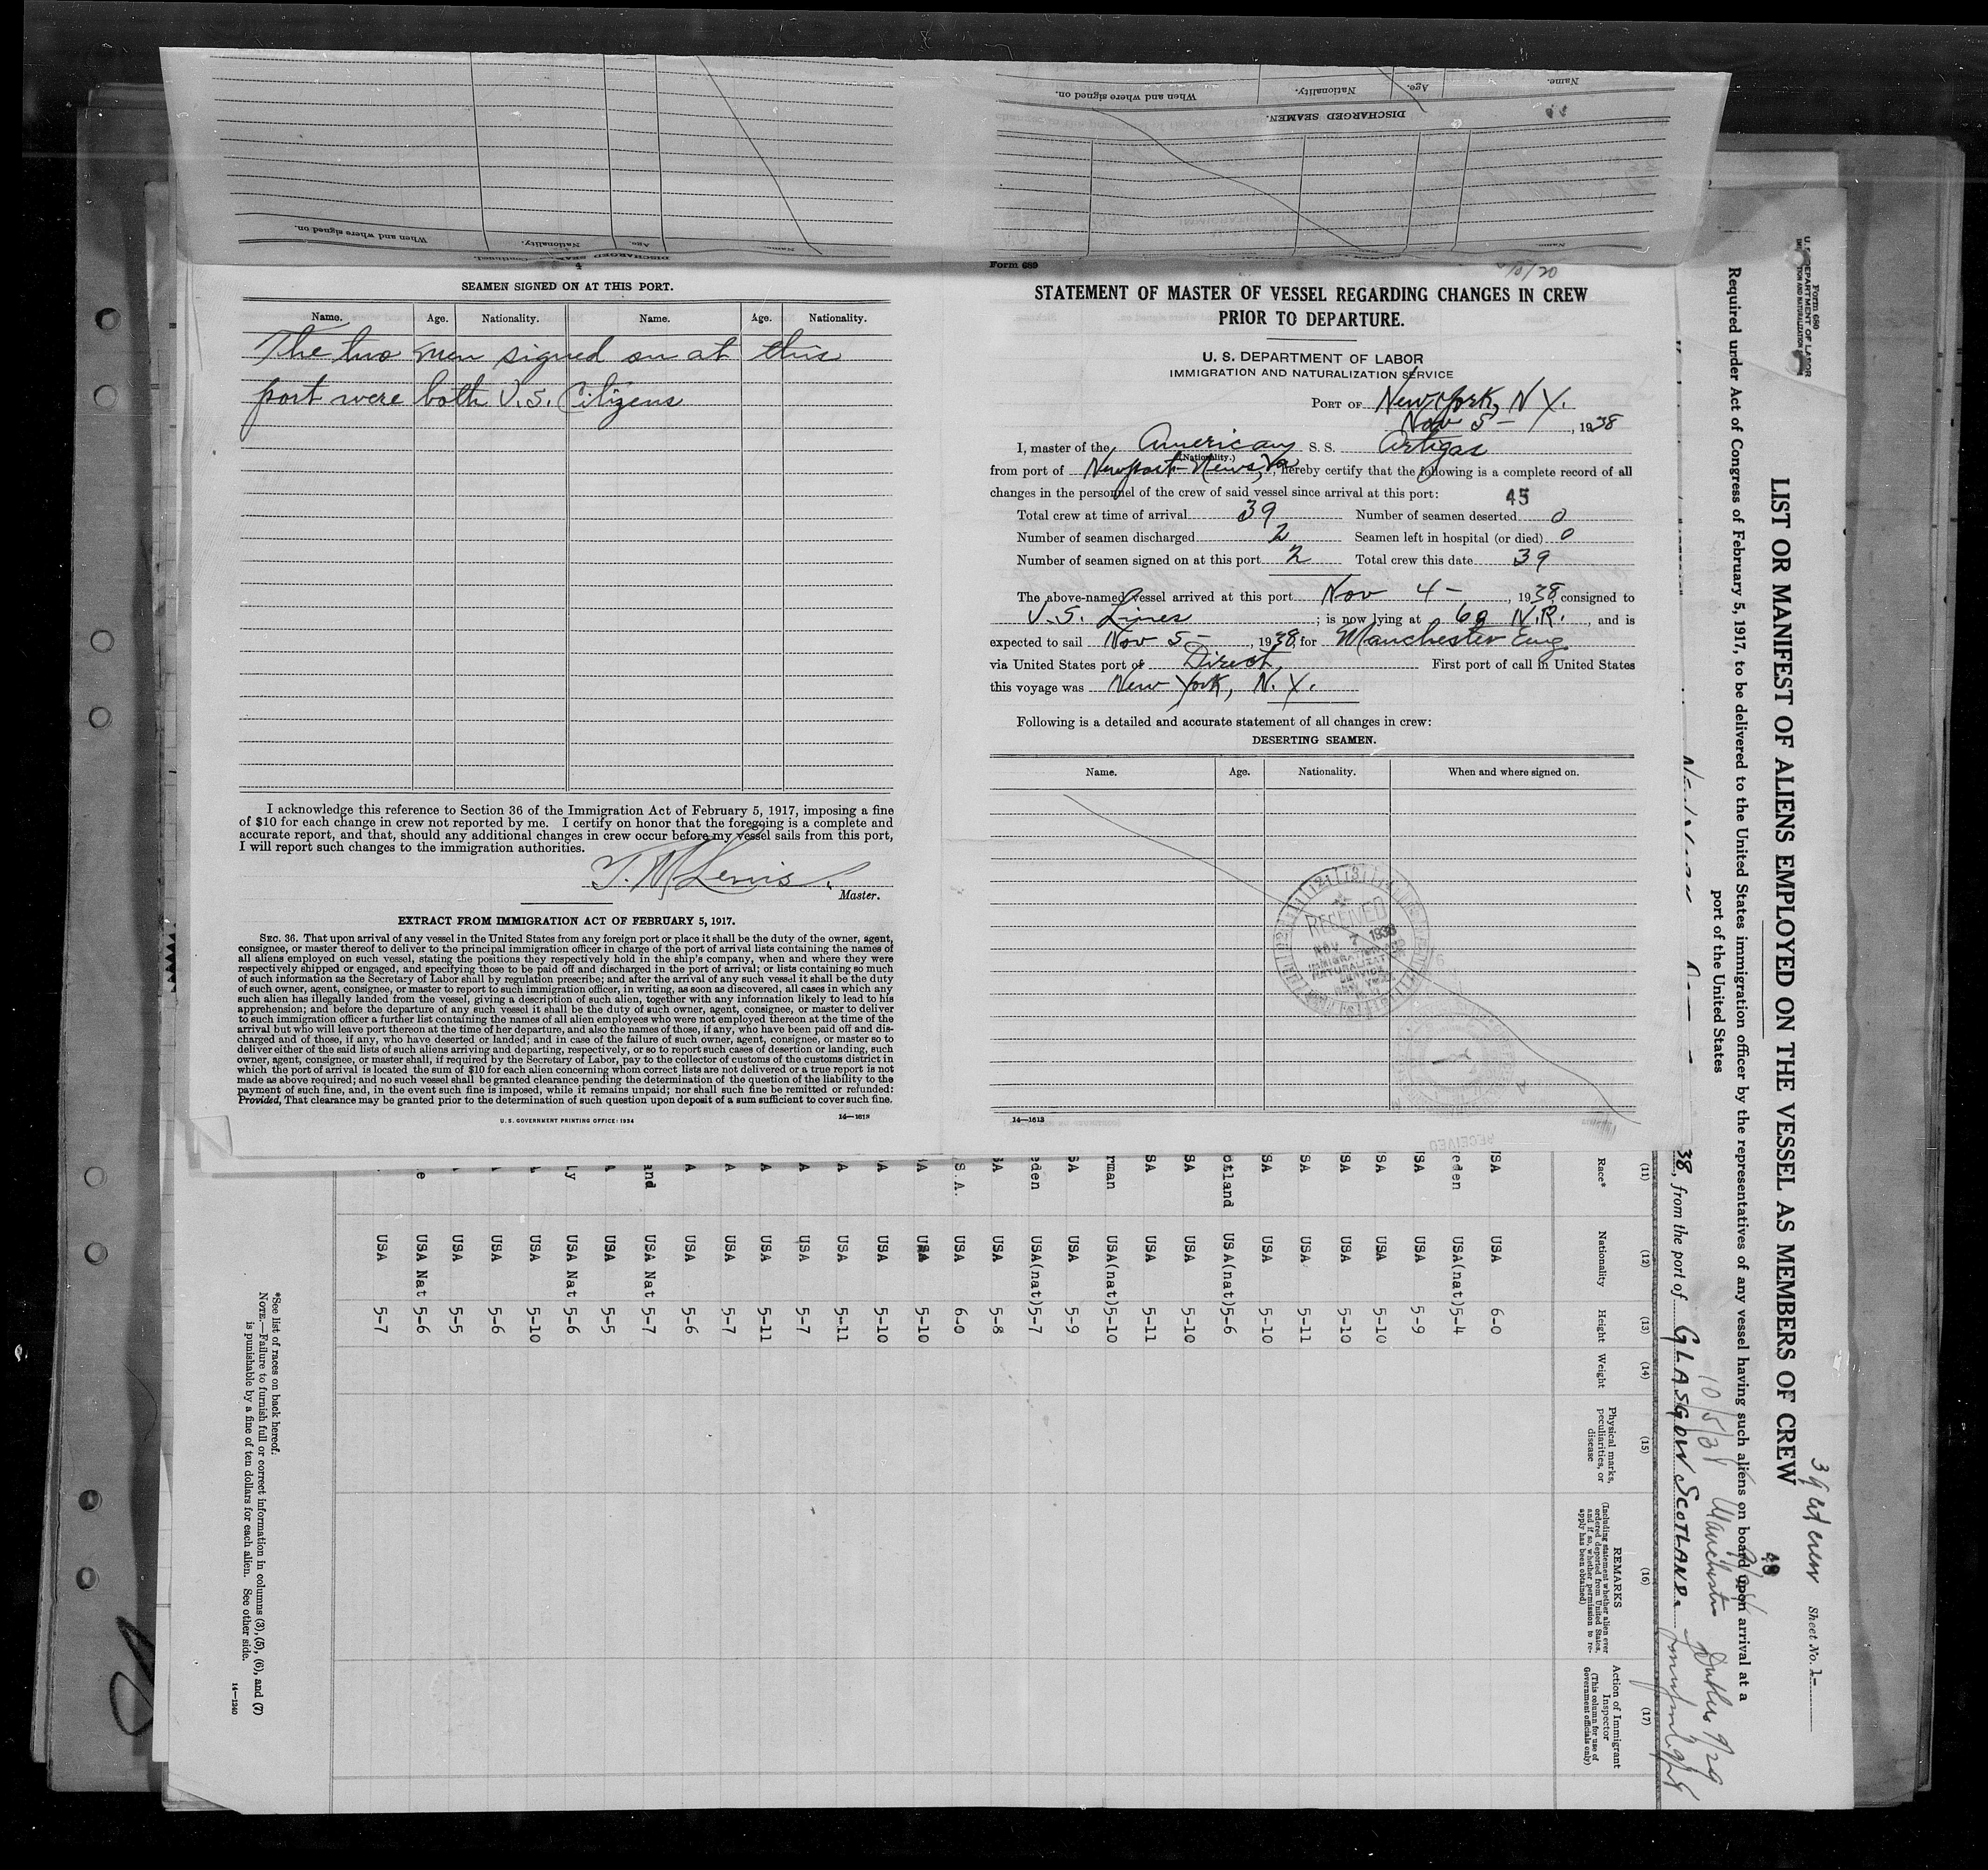 SEAMEN SIGNED ON AT THIS PORT.
Name. Age. Nationality. Name. Age. Nationality.
The two men signed on at this
port were both U.S. Citizens
I acknowledge this reference to Section 36 of the Immigration Act of February 5, 1917, imposing a fine
of $10 for each change in crew not reported by me. I certify on honor that the foregoing is a complete and
accurate report, and that, should any additional changes in crew occur before my vessel sails from this port,
I will report such changes to the immigration authorities.
T. M. Lewis.
Master.
EXTRACT FROM IMMIGRATION ACT OF FEBRUARY 5, 1917.
SEC. 36. That upon arrival of any vessel in the United States from any foreign port or place it shall be the duty of the owner, agent,
consignee, or master thereof to deliver to the principal immigration officer in charge of the port of arrival lists containing the names of
all aliens employed on such vessel, stating the positions they respectively hold in the ship's company, when and where they were
respectively shipped or engaged, and specifying those to be paid off and discharged in the port of arrival; or lists containing so much
of such information as the Secretary of Labor shall by regulation prescribe; and after the arrival of any such vessel it shall be the duty
of such owner, agent, consignee, or master to report to such immigration officer, in writing, as soon as discovered, all cases in which any
such alien has illegally landed from the vessel, giving a description of such alien, together with any information likely to lead to his
apprehension; and before the departure of any such vessel it shall be the duty of such owner, agent, consignee, or master to deliver
to such immigration officer a further list containing the names of all alien employees who were not employed thereon at the time of the
arrival but who will leave port thereon at the time of her departure, and also the names of those, if any, who have been paid off and dis-
charged and of those, if any, who have deserted or landed; and in case of the failure of such owner, agent, consignee, or master so to
deliver either of the said lists of such aliens arriving and departing, respectively, or so to report such cases of desertion or landing, such
owner, agent, consignee, or master shall, if required by the Secretary of Labor, pay to the collector of customs of the customs district in
which the port of arrival is located the sum of $10 for each alien concerning whom correct lists are not delivered or a true report is not
made as above required; and no such vessel shall be granted clearance pending the determination of the question of the liability to the
payment of such fine, and, in the event such fine is imposed, while it remains unpaid; nor shall such fine be remitted or refunded:
Provided, That clearance may be granted prior to the determination of such question upon deposit of a sum sufficient to cover such fine.
U. S. GOVERNMENT PRINTING OFFICE: 1934 14—1613
Form 689
10/20
STATEMENT OF MASTER OF VESSEL REGARDING CHANGES IN CREW
PRIOR TO DEPARTURE.
U. S. DEPARTMENT OF LABOR
IMMIGRATION AND NATURALIZATION SERVICE
PORT OF New York, N.Y.
Nov 5 -, 1938
I, master of the American S. S. Artigas
(Nationality.)
from port of Newport News, Va, hereby certify that the following is a complete record of all
changes in the personnel of the crew of said vessel since arrival at this port:
45
Total crew at time of arrival 39 Number of seamen deserted 0
Number of seamen discharged 2 Seamen left in hospital (or died) 0
Number of seamen signed on at this port 2 Total crew this date 39
The above-named vessel arrived at this port Nov 4 -, 1938, consigned to
U.S. Lines; is now lying at 60 N.R., and is
expected to sail Nov 5 -, 1938, for Manchester Eng
via United States port of Direct. First port of call in United States
this voyage was New York, N.Y.
Following is a detailed and accurate statement of all changes in crew:
DESERTING SEAMEN.
Name. Age. Nationality. When and where signed on.
RECEIVED
NOV 7 1938
IMMIGRATION AND
NATURALIZATION
SERVICE
14—1613
RECEIVED
When and where signed on. Nationality. Age. Name.
DISCHARGED SEAMEN.
When and where signed on. Nationality. Age. Name.
DISCHARGED SEAMEN—Continued.
Name.
Form 680
U. S. DEPARTMENT OF LABOR
39 est crew Sheet No. 1-
48
LIST OR MANIFEST OF ALIENS EMPLOYED ON THE VESSEL AS MEMBERS OF CREW
Required under Act of Congress of February 5, 1917, to be delivered to the United States immigration officer by the representatives of any vessel having such aliens on board upon arrival at a
port of the United States
10/5/38 Manchester
38, from the port of GLASGOW SCOTLAND.
(11) (12) (13) (14) (15) (16) (17)
Race* Nationality Height Weight Physical marks, peculiarities, or disease REMARKS (Including statement whether alien ever ordered deported from United States, and if so, whether permission to reapply has been obtained) Action of Immigrant Inspector (This column for use of Government officials only)
USA USA 6-0
eden USA(nat) 5-4
USA USA 5-9
SA USA 5-10
SA USA 5-10
SA USA 5-11
SA USA 5-10
otland USA(nat) 5-6
SA USA 5-10
SA USA 5-11
rman USA(nat) 5-10
SA USA 5-9
eden USA(nat) 5-7
SA USA 5-8
S.A. USA 6-0
SA USA 5-10
A USA 5-10
A USA 5-11
A USA 5-7
A USA 5-11
A USA 5-7
A USA 5-6
and USA Nat 5-7
A USA 5-5
ly USA Nat 5-6
USA 5-10
USA 5-6
USA 5-5
e USA Nat 5-6
USA 5-7
*See list of races on back hereof.
NOTE.—Failure to furnish full or correct information in columns (3), (5), (6), and (7)
is punishable by a fine of ten dollars for each alien. See other side.
14—1240